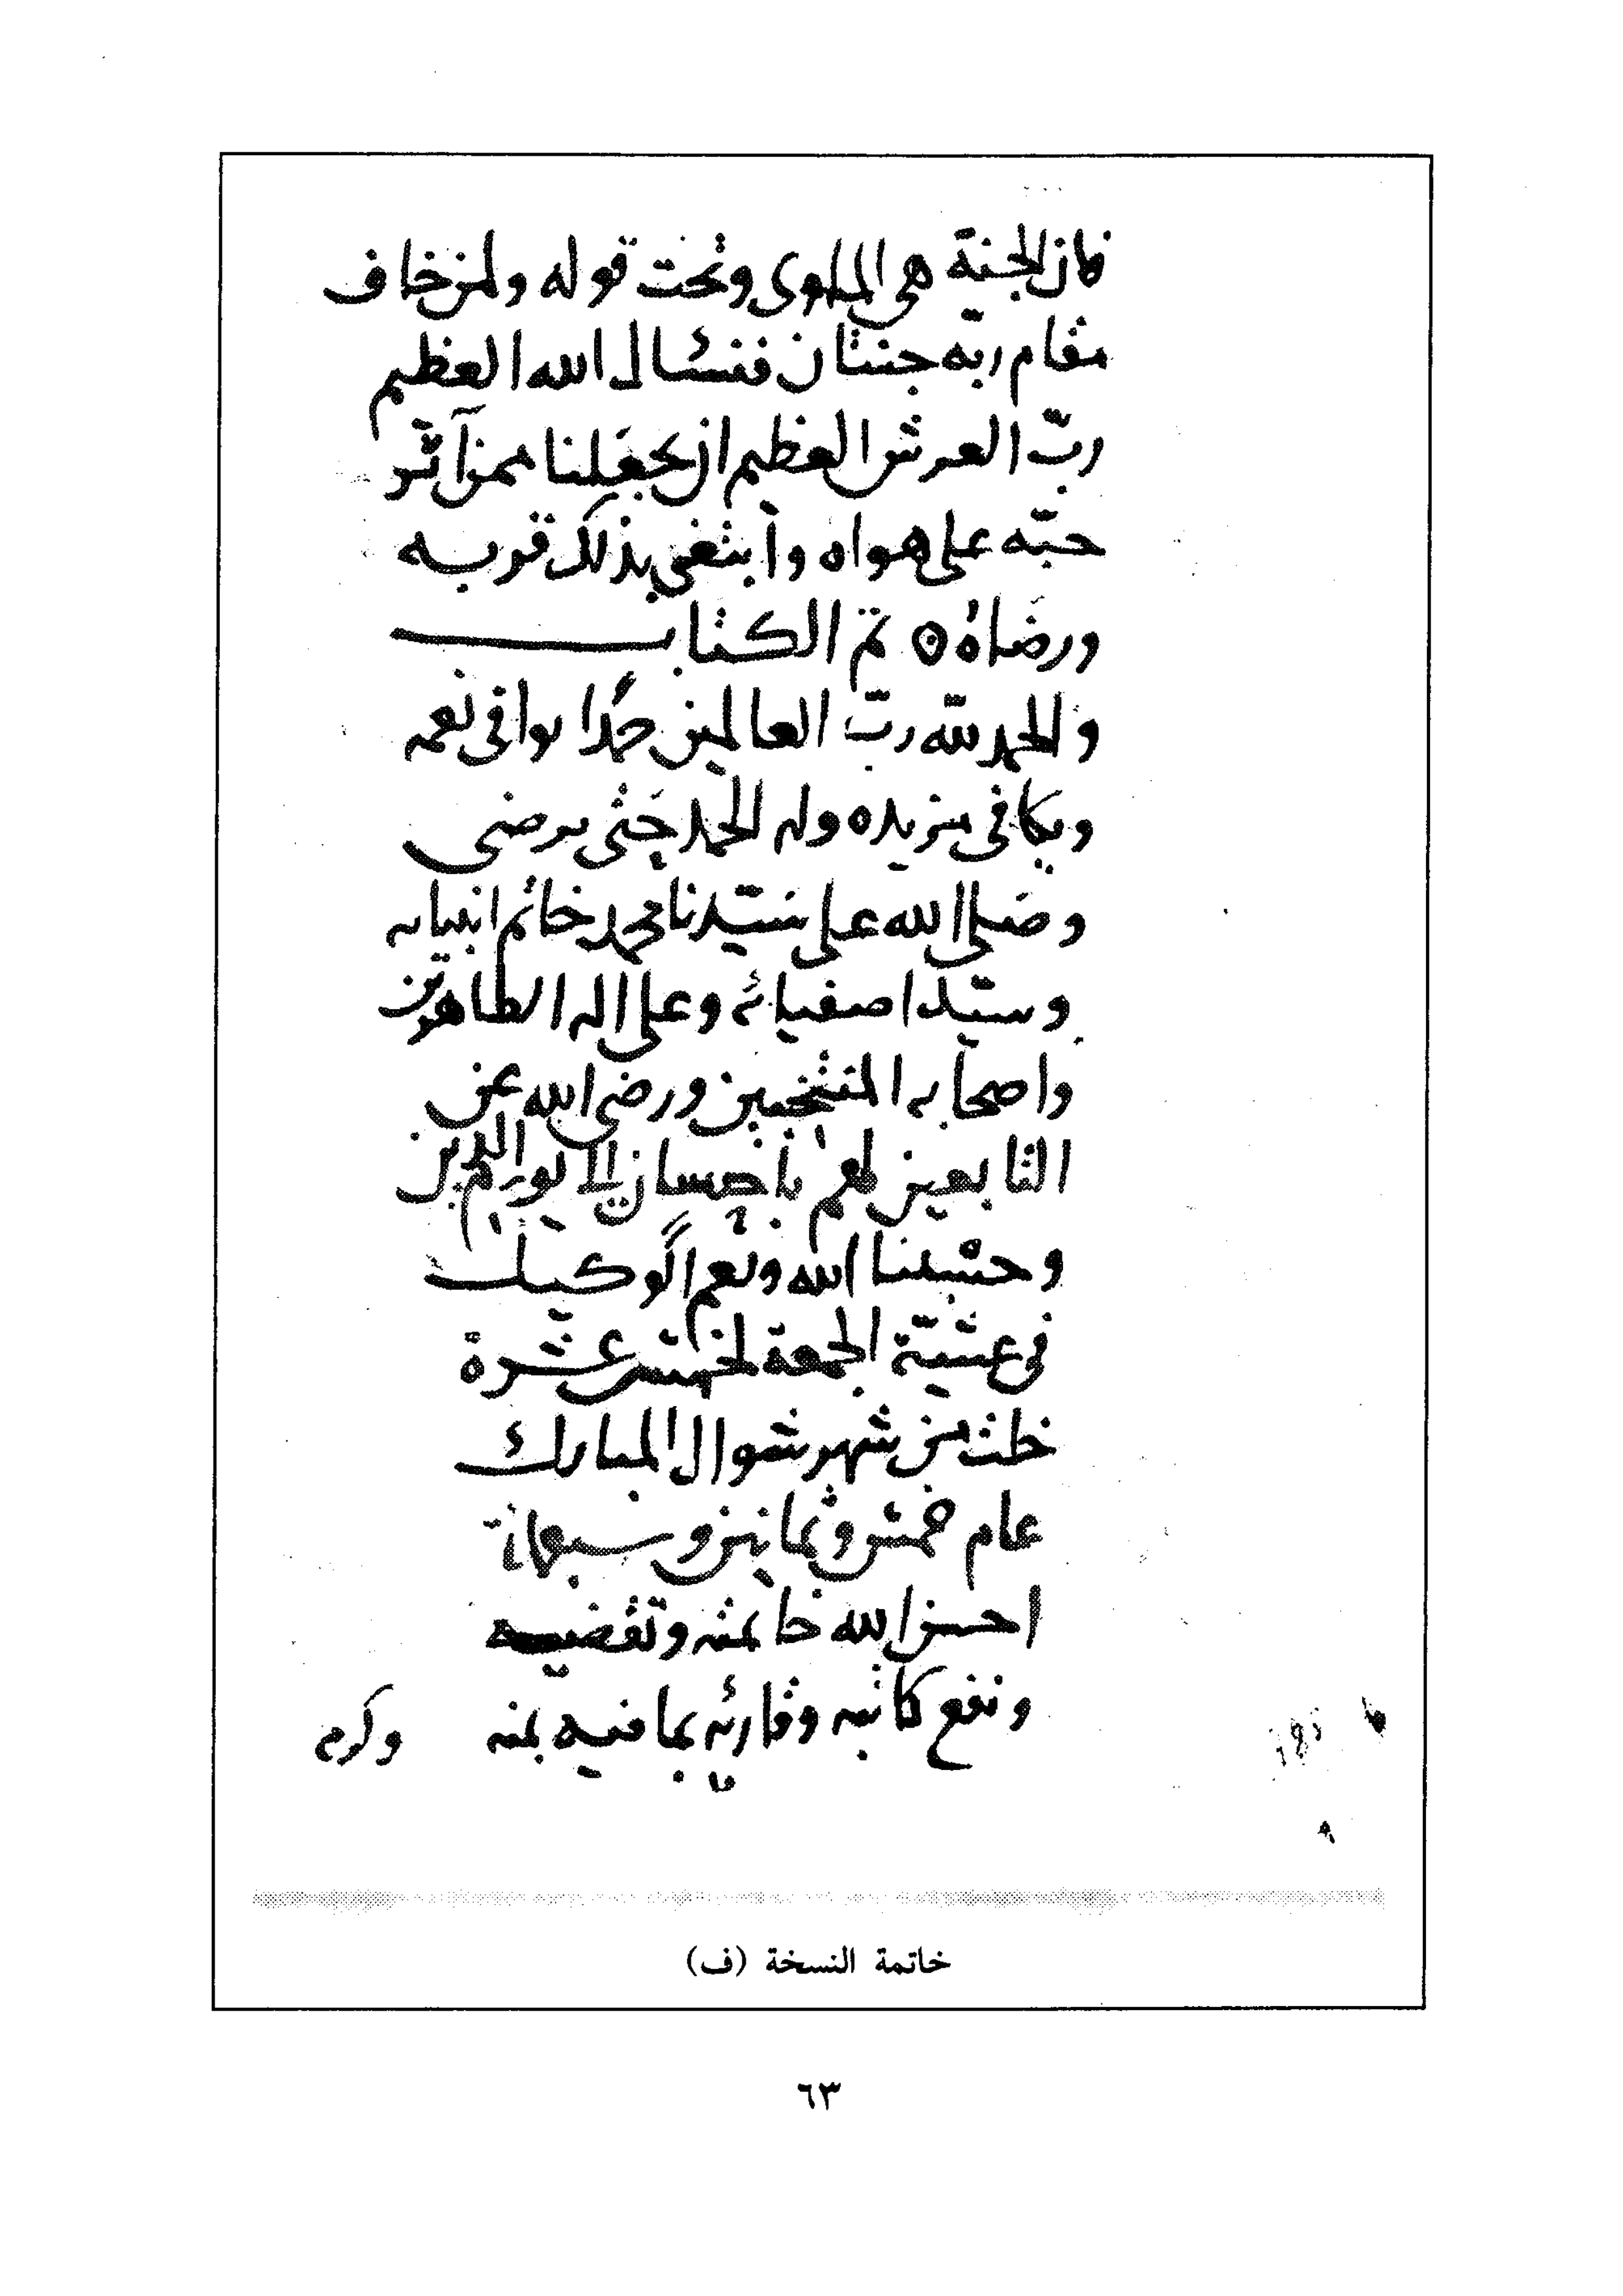 فان الجنة هي الماوى وتحت قوله ولمن خاف
مقام ربّه جنتان فنسئال الله العظيم
ربّ العرش العظيم ان يجعلنا ممن آثر
حبّه على هواه وابتغى بذلك قربه
ورضاه ۞ تمّ الكتاب
والحمد لله ربّ العالمين حمدًا يوافي نعمه
ويكافي مزيده وله الحمد حتى يرضى
وصلى الله على سيّدنا محمد خاتم انبيايه
وسيّد اصفيائه وعلى اله الطاهرين
واصحابه المنتخبين ورضي الله عن
التابعين لهم باحسان الى يوم الدين
وحسبنا الله ونعم الوكيل
في عشيّة الجمعة لخمس عشرة
خلت من شهر شوال المبارك
عام خمس وثمانين وسبعمائة
احسن الله خاتمته وتقضيه
ونفع كاتبه وقارئه بما فيه بمنه وكرم
خاتمة النسخة (ف)
٦٣